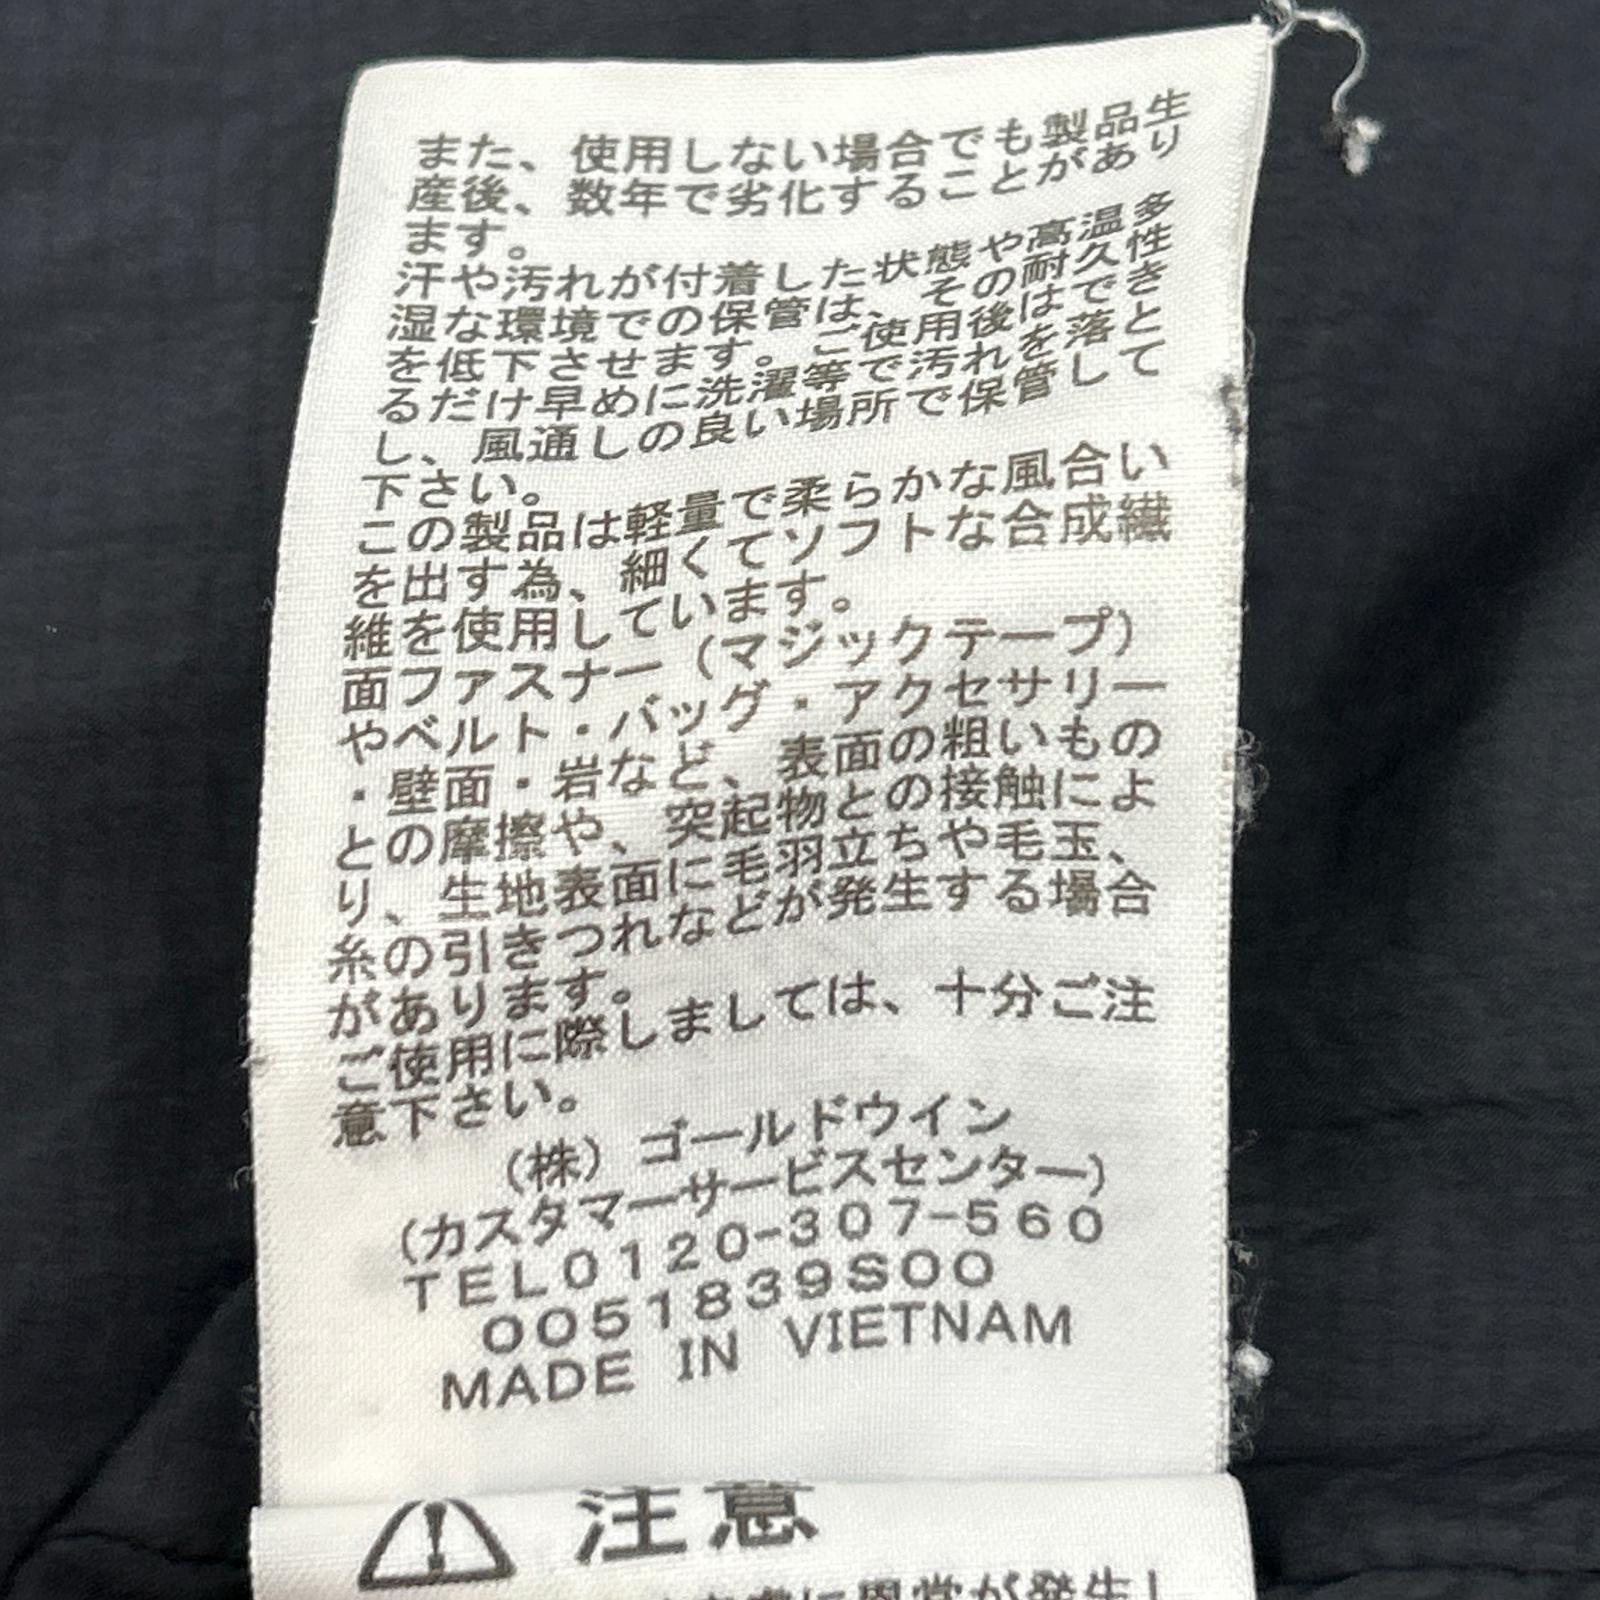 また、使用しない場合でも製品生
産後、数年で劣化することがあり
ます。
汗や汚れが付着した状態や高温多
湿な環境での保管は、その耐久性
を低下させます。ご使用後はでき
るだけ早めに洗濯等で汚れを落と
し、風通しの良い場所で保管して
下さい。
この製品は軽量で柔らかな風合い
を出す為、細くてソフトな合成繊
維を使用しています。
面ファスナー(マジックテープ)
やベルト・バッグ・アクセサリー
・壁面・岩など、表面の粗いもの
との摩擦や、突起物との接触によ
り、生地表面に毛羽立ちや毛玉、
糸の引きつれなどが発生する場合
があります。
ご使用に際しましては、十分ご注
意下さい。
(株) ゴールドウイン
(カスタマーサービスセンター)
TEL0120-307-560
0051839S00
MADE IN VIETNAM
注意
に異常が発生し